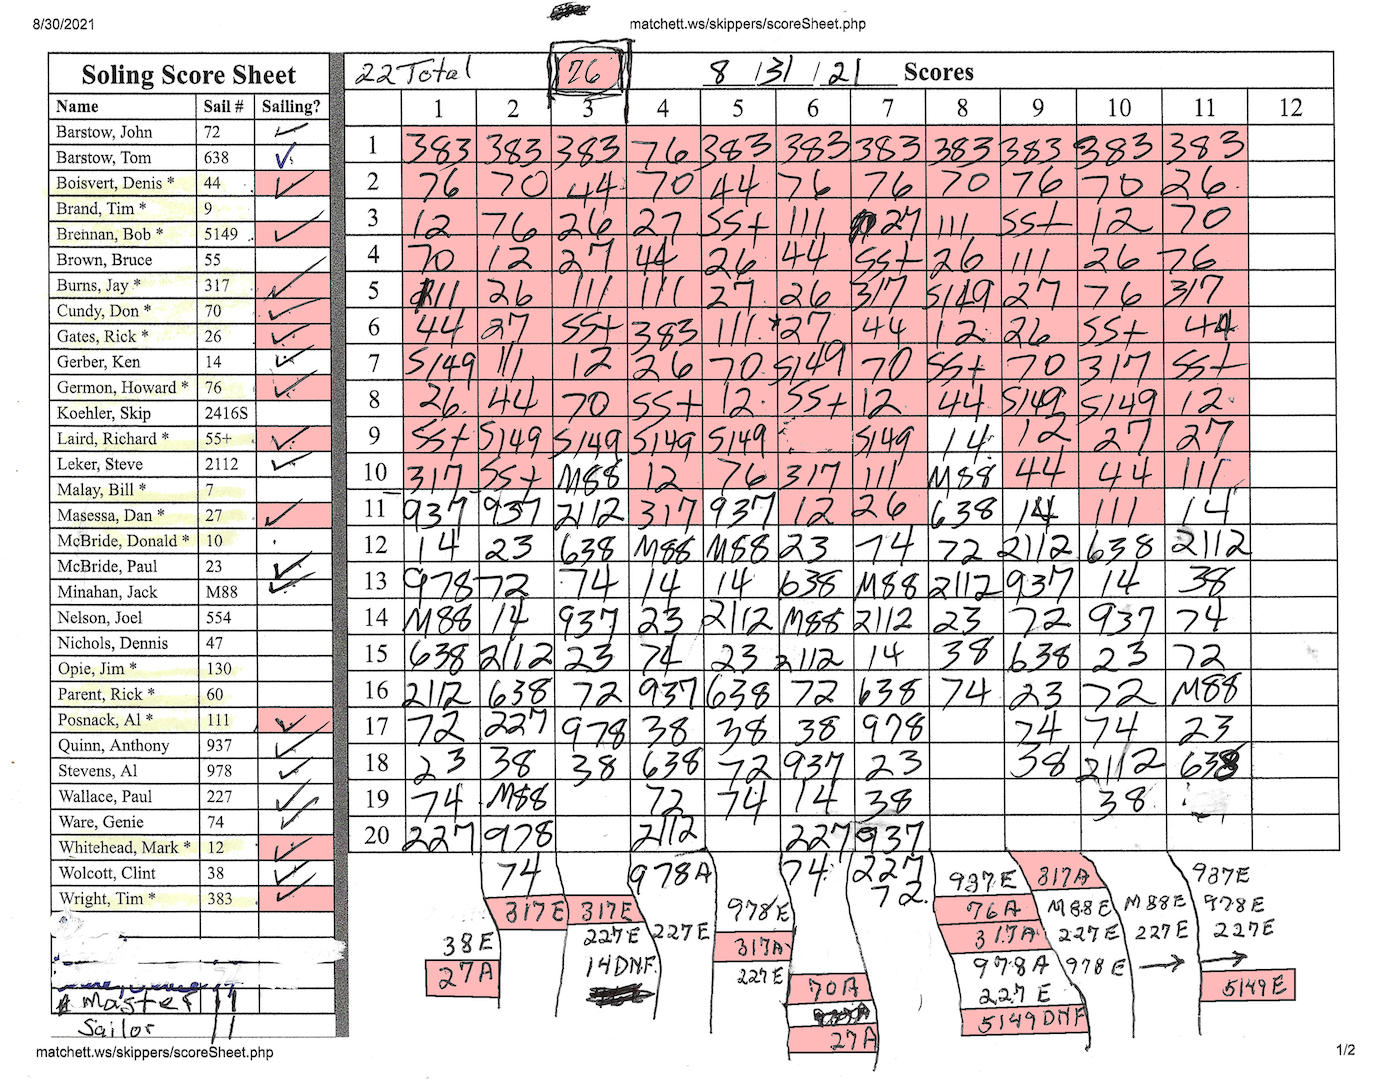 8/30/2021 matchett.ws/skippers/scoreSheet.php
Soling Score Sheet 22 Total 76 8/31/21 Scores
Name Sail # Sailing? 1 2 3 4 5 6 7 8 9 10 11 12
Barstow, John 72
Barstow, Tom 638
Boisvert, Denis * 44
Brand, Tim * 9
Brennan, Bob * 5149
Brown, Bruce 55
Burns, Jay * 317
Cundy, Don * 70
Gates, Rick * 26
Gerber, Ken 14
Germon, Howard * 76
Koehler, Skip 2416S
Laird, Richard * 55+
Leker, Steve 2112
Malay, Bill * 7
Masessa, Dan * 27
McBride, Donald * 10
McBride, Paul 23
Minahan, Jack M88
Nelson, Joel 554
Nichols, Dennis 47
Opie, Jim * 130
Parent, Rick * 60
Posnack, Al * 111
Quinn, Anthony 937
Stevens, Al 978
Wallace, Paul 227
Ware, Genie 74
Whitehead, Mark * 12
Wolcott, Clint 38
Wright, Tim * 383
* Master 11
Sailor 11
1 383 383 383 76 383 383 383 383 383 383 383
2 76 70 44 70 44 76 76 70 76 70 26
3 12 76 26 27 55+ 111 27 111 55+ 12 70
4 70 12 27 44 26 44 55+ 26 111 26 76
5 111 26 111 111 27 26 317 5149 27 76 317
6 44 27 55+ 383 111 *27 44 12 26 55+ 44
7 5149 111 12 26 70 5149 70 55+ 70 317 55+
8 26 44 70 55+ 12 55+ 12 44 5149 5149 12
9 55+ 5149 5149 5149 5149 5149 14 12 27 27
10 317 55+ M88 12 76 317 111 M88 44 44 111
11 937 937 2112 317 937 12 26 638 14 111 14
12 14 23 638 M88 M88 23 74 72 2112 638 2112
13 978 72 74 14 14 638 M88 2112 937 14 38
14 M88 14 937 23 2112 M88 2112 23 72 937 74
15 638 2112 23 74 23 2112 14 38 638 23 72
16 2112 638 72 937 638 72 638 74 23 72 M88
17 72 227 978 38 38 38 978 74 74 23
18 23 38 38 638 72 937 23 38 2112 638
19 74 M88 72 74 14 38 38
20 227 978 2112 227 937
74 978A 74 227 937E 317A 937E
72
317E 317E 978E 76A M88E M88E 978E
38E 227E 227E 317A 317A 227E 227E 227E
27A 14DNF 227E 978A 978E
70A 227E 5149E
27A 5149DNF
matchett.ws/skippers/scoreSheet.php 1/2